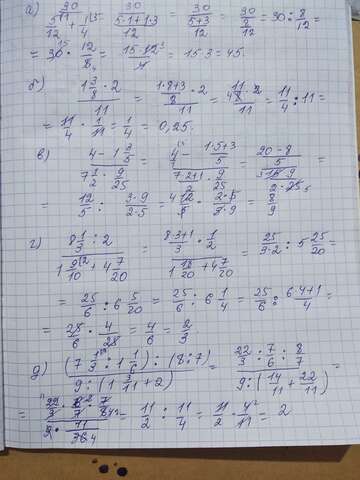 а) 30/(5/12 + 1/4) = 30/((5·1+1·3)/12) = 30/((5+3)/12) = 30/(8/12) = 30 : 8/12 =
= 30 · 12/8 = 15·12/4 = 15·3 = 45.
б) (1 3/8 · 2)/11 = ((1·8+3)/8 · 2)/11 = (11/8 · 2)/11 = 11/4 : 11 =
= 11/4 · 1/11 = 1/4 = 0,25.
в) (4 - 1 3/5)/(7 1/2 · 9/25) = (4/1 - (1·5+3)/5)/((7·2+1)/2 · 9/25) = ((20-8)/5)/((3·9)/(2·5)) =
= 12/5 : (3·9)/(2·5) = 12/5 · (2·5)/(3·9) = 8/9
г) (8 1/3 : 2)/(1 9/10 + 4 7/20) = ((8·3+1)/3 · 1/2)/(1 18/20 + 4 7/20) = 25/(3·2) : 5 25/20 =
= 25/6 : 6 5/20 = 25/6 : 6 1/4 = 25/6 : (6·4+1)/4 =
= 25/6 · 4/25 = 4/6 = 2/3.
д) ((7 1/3 : 1 1/6) : (8:7))/(9 : (1 3/11 + 2)) = (22/3 : 7/6 : 8/7)/(9 : (14/11 + 22/11)) =
= (22/3 · 6/7 · 7/8)/(9 · 11/36) = 11/2 : 11/4 = 11/2 · 4/11 = 2